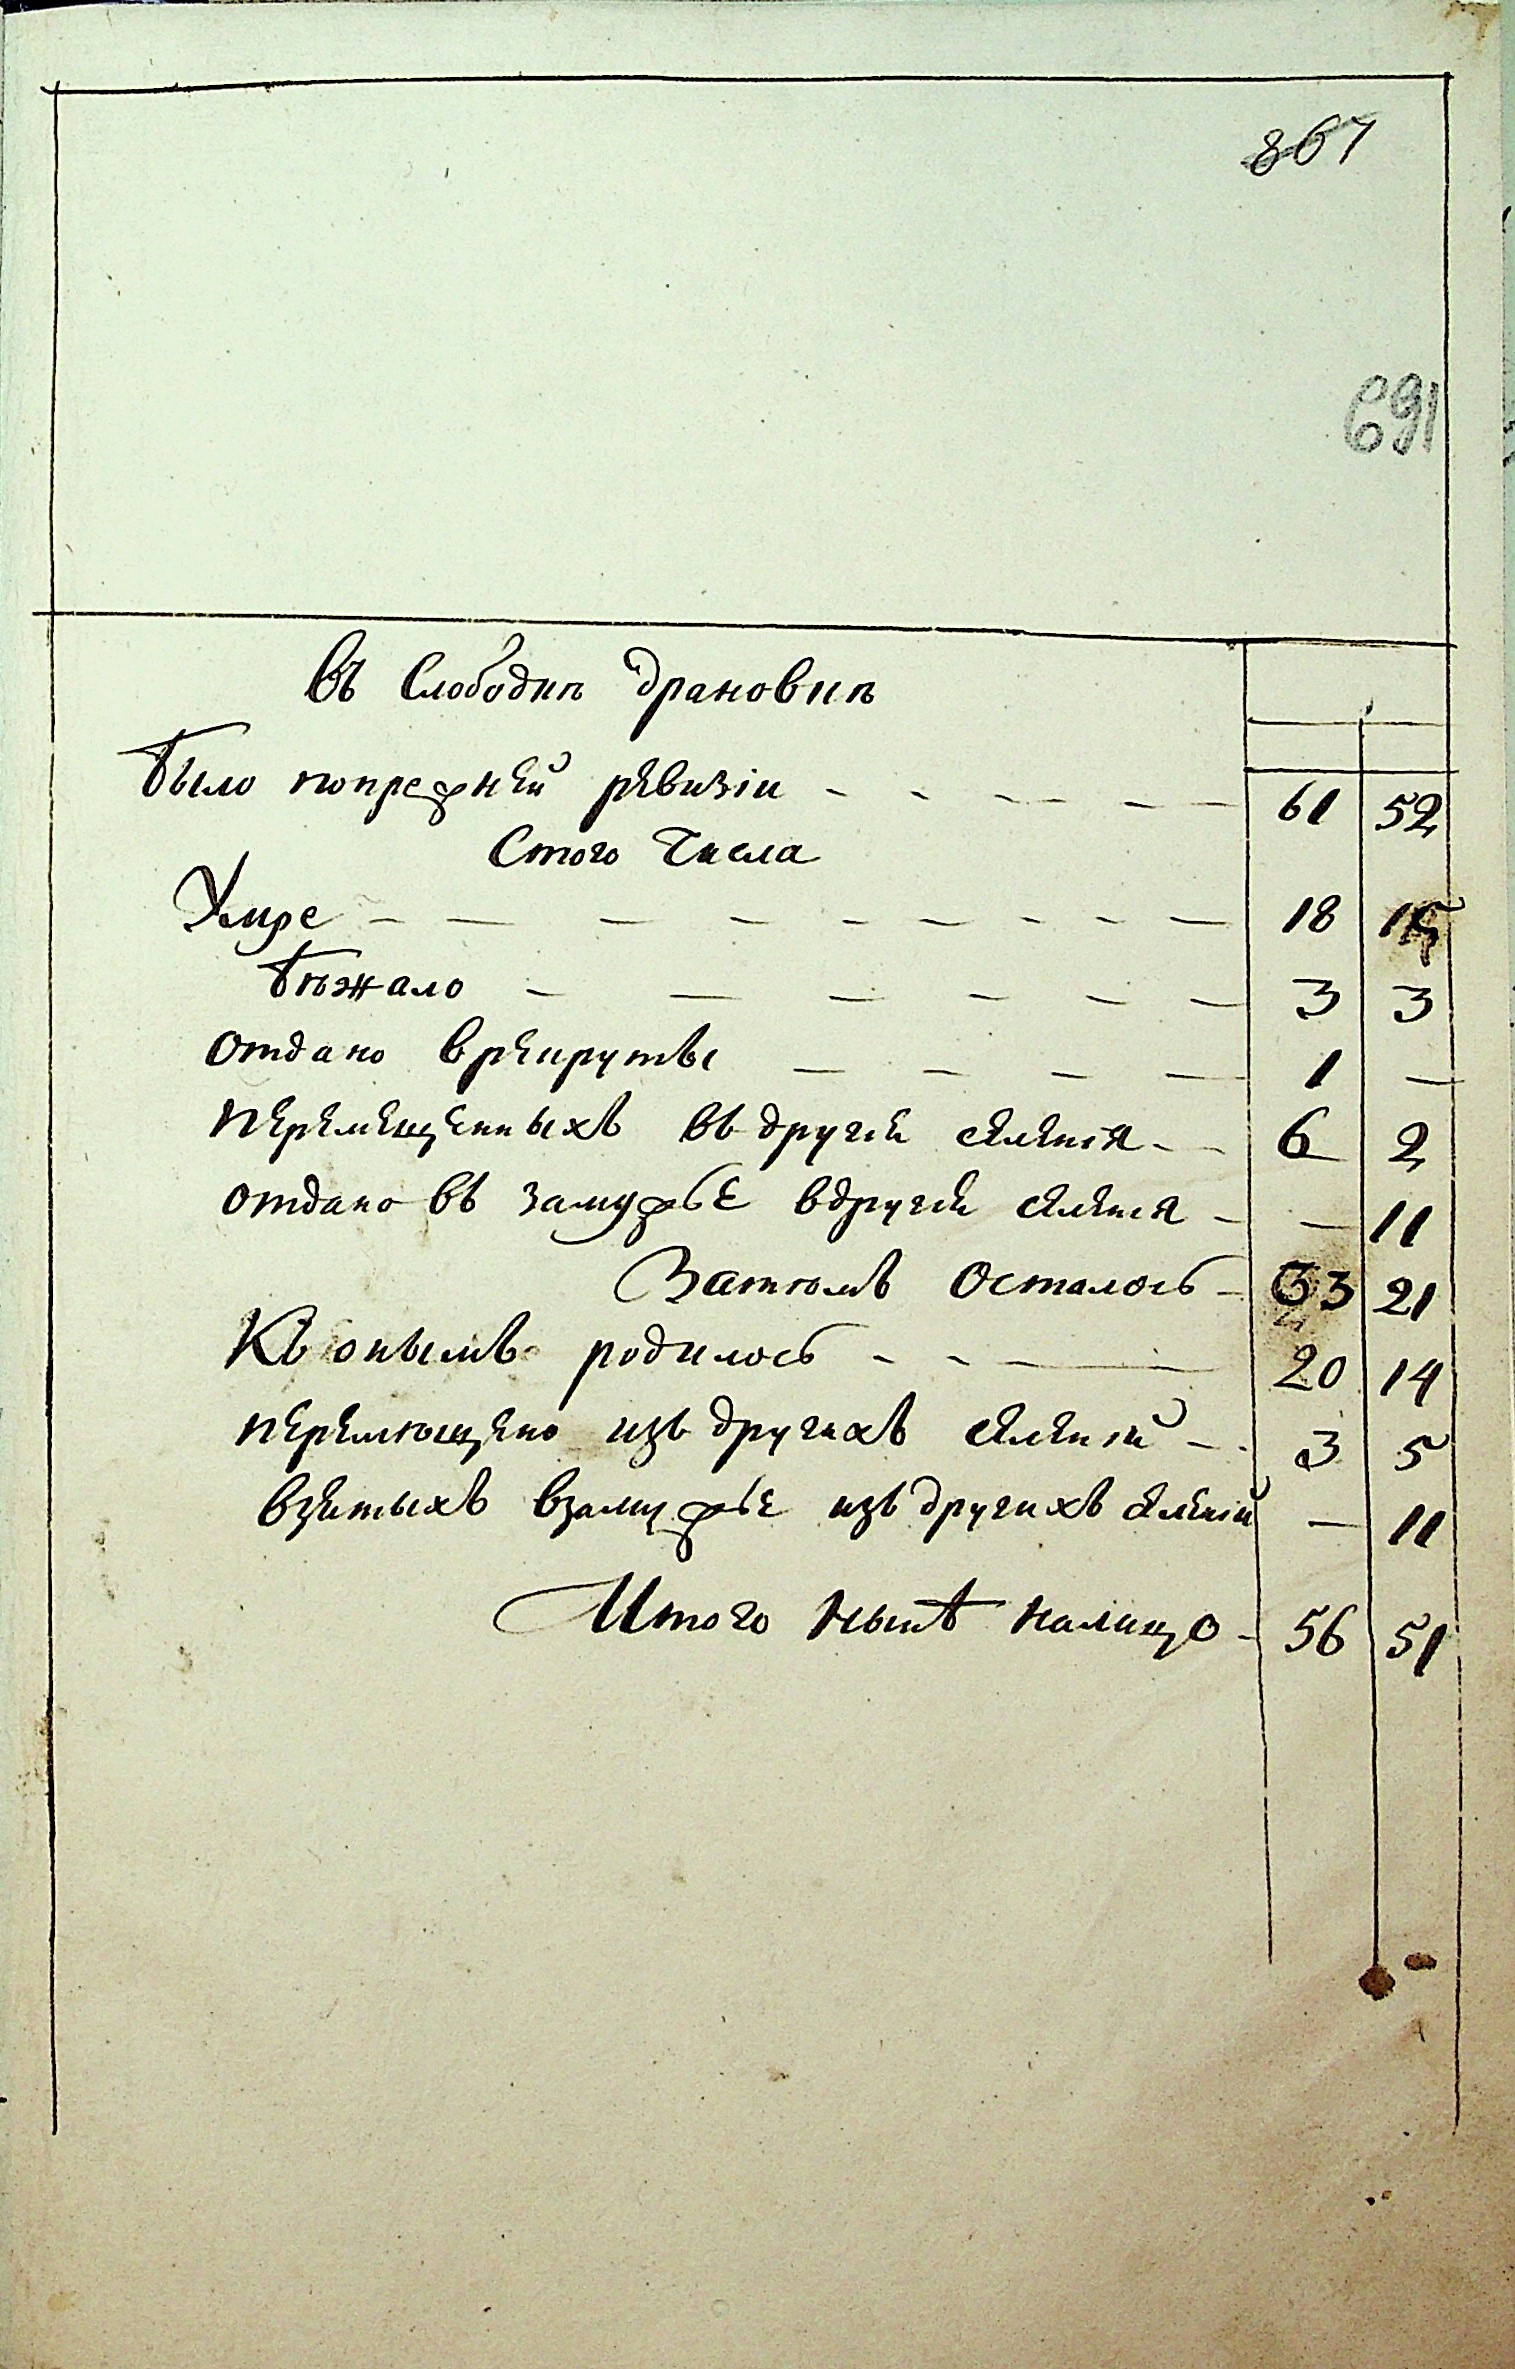 867
691
Въ Слободнъ Драновкъ
было попрежнѣй ревизіи - - - - - 61 52
Стого Числа
Умре - - - - - - - - - 18 15
бѣжало - - - - - - 3 3
отдано в рекруты - - - - 1 -
перемещенныхъ въ другіе селенія - - 6 2
отдано въ замужье вдругіе селенія - - 11
Затемъ осталось - 33 21
Къ онымъ родилось - - - 20 14
перемещено изъ другихъ селеній - - 3 5
взятыхъ взамужье изъ другихъ селеній - 11
Итого нынѣ налицо - 56 51